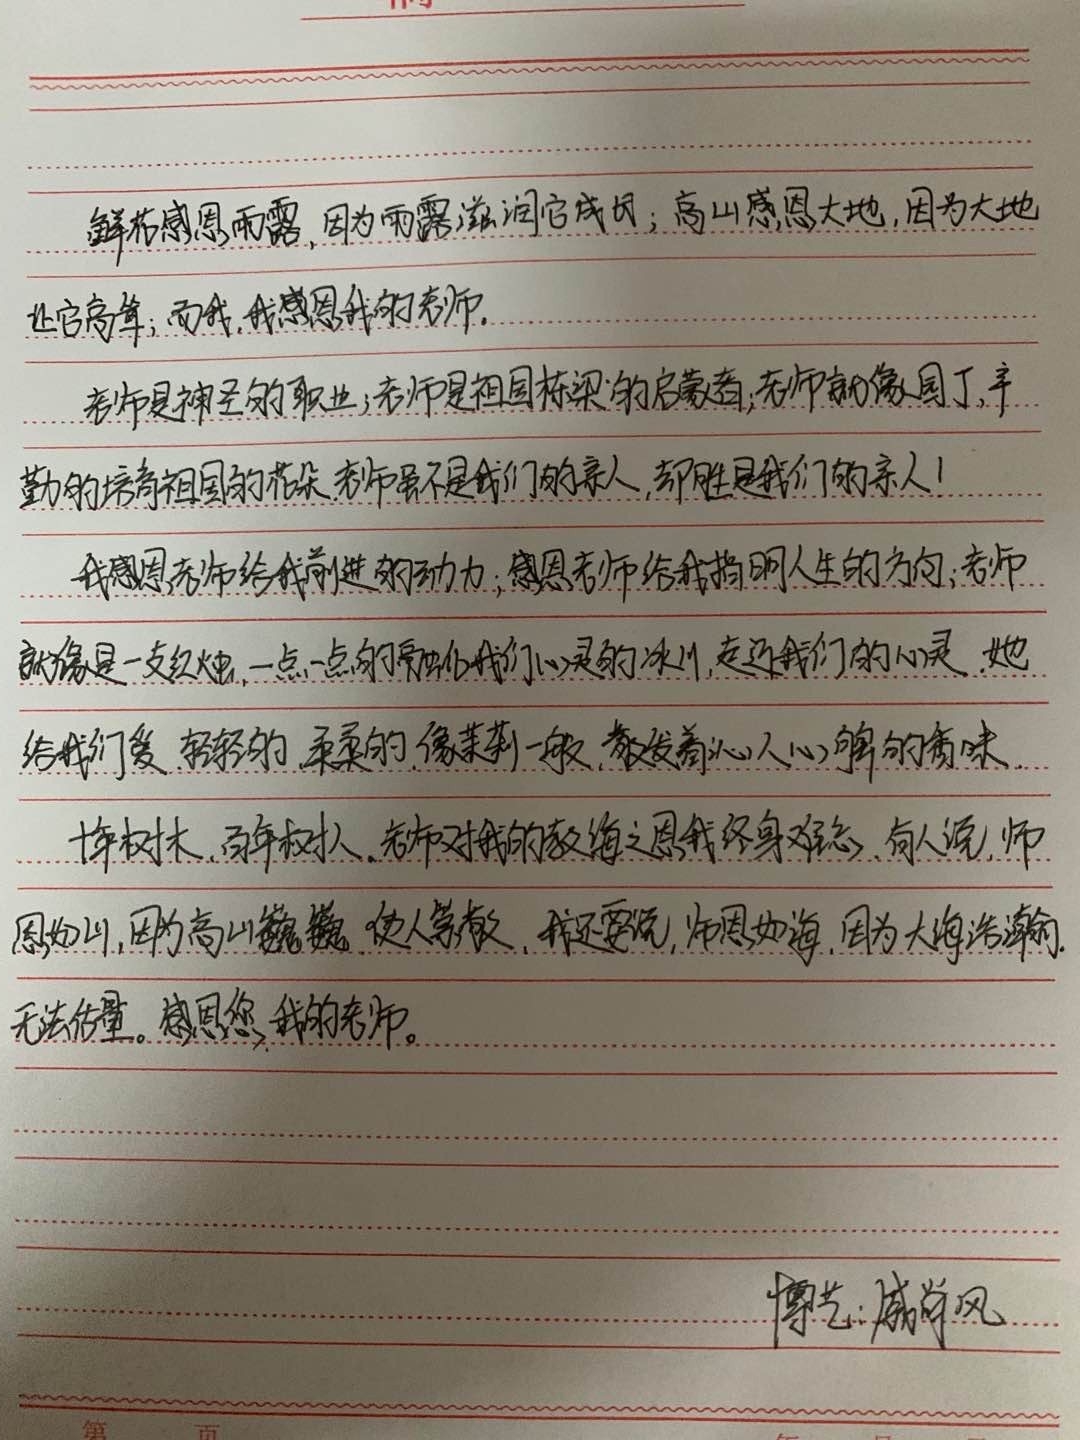 鲜花感恩雨露,因为雨露滋润它成长;高山感恩大地,因为大地
让它高耸;而我,我感恩我的老师.
老师是神圣的职业;老师是祖国栋梁的启蒙者;老师就像园丁,辛
勤的培育祖国的花朵.老师虽不是我们的亲人,却胜是我们的亲人!
我感恩老师给我前进的动力;感恩老师给我指明人生的方向;老师
就像是一支红烛,一点一点的融化我们心灵的冰川,走近我们的心灵.她
给我们爱.轻轻的.柔柔的.像茉莉一般.散发着沁人心脾的香味.
十年树木,百年树人.老师对我的教诲之恩我终身难忘.有人说,师
恩如山,因为高山巍巍.使人崇敬.我还要说,师恩如海,因为大海浩瀚.
无法估量。感恩您,我的老师。
博艺:戚 风
第 页